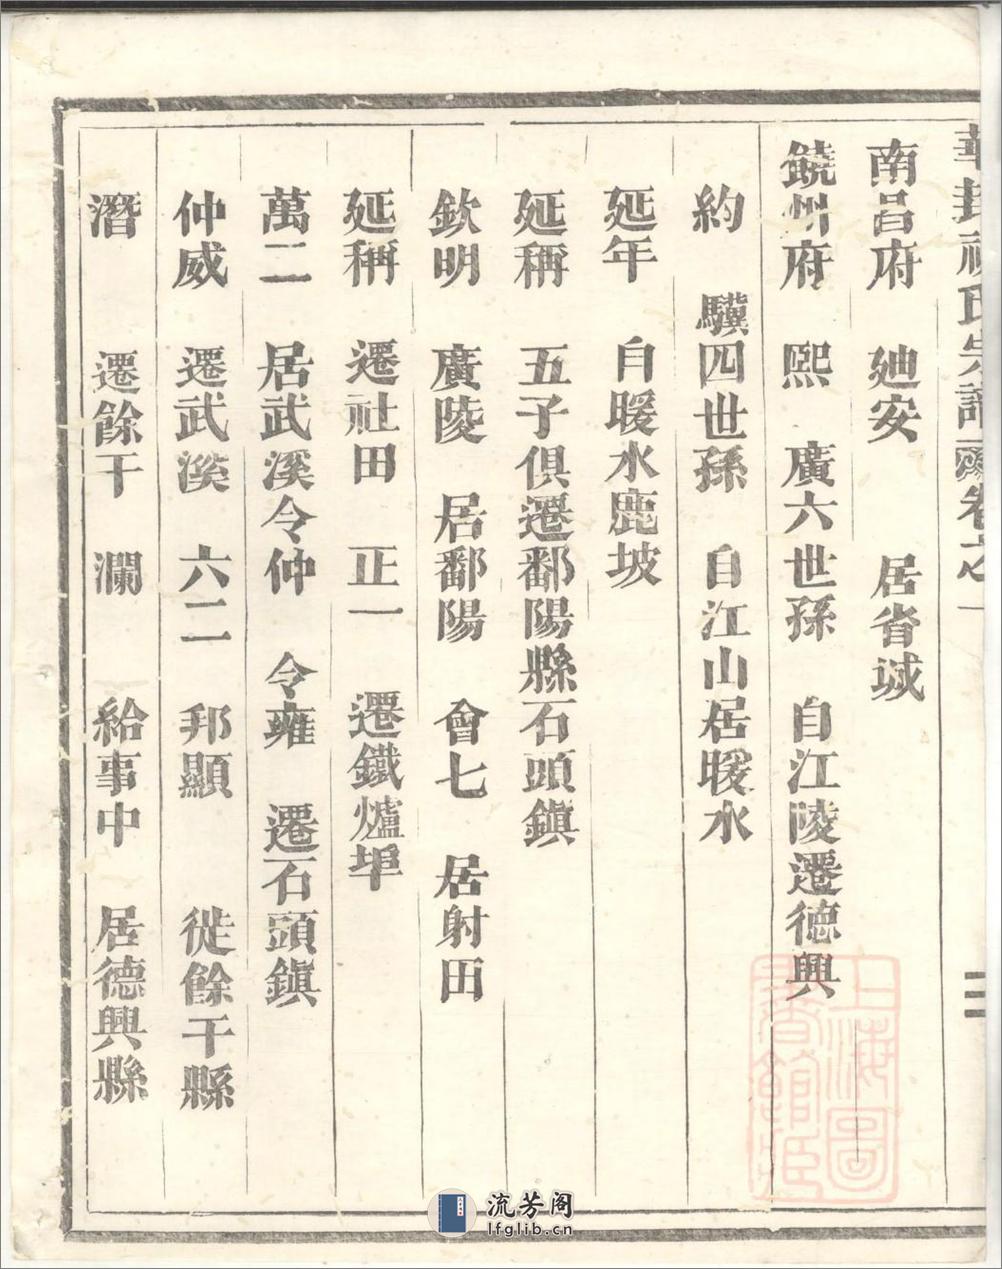 華封祝氏宗譜 卷之一
南昌府 廸安 居省城
饒州府 熙 廣六世孫 自江陵遷德興
約 驥四世孫 自江山居暖水
延年 自暖水鹿坡
延稱 五子俱遷鄱陽縣石頭鎮
欽明 廣陵 居鄱陽 會七 居射田
延稱 遷社田 正一 遷鐵爐埠
萬二 居武溪令仲 令雍 遷石頭鎮
仲威 遷武溪 六二 邦顯 徙餘干縣
潛 遷餘干 瀾 給事中 居德興縣
上海圖書館藏
流芳阁
lfglib.cn